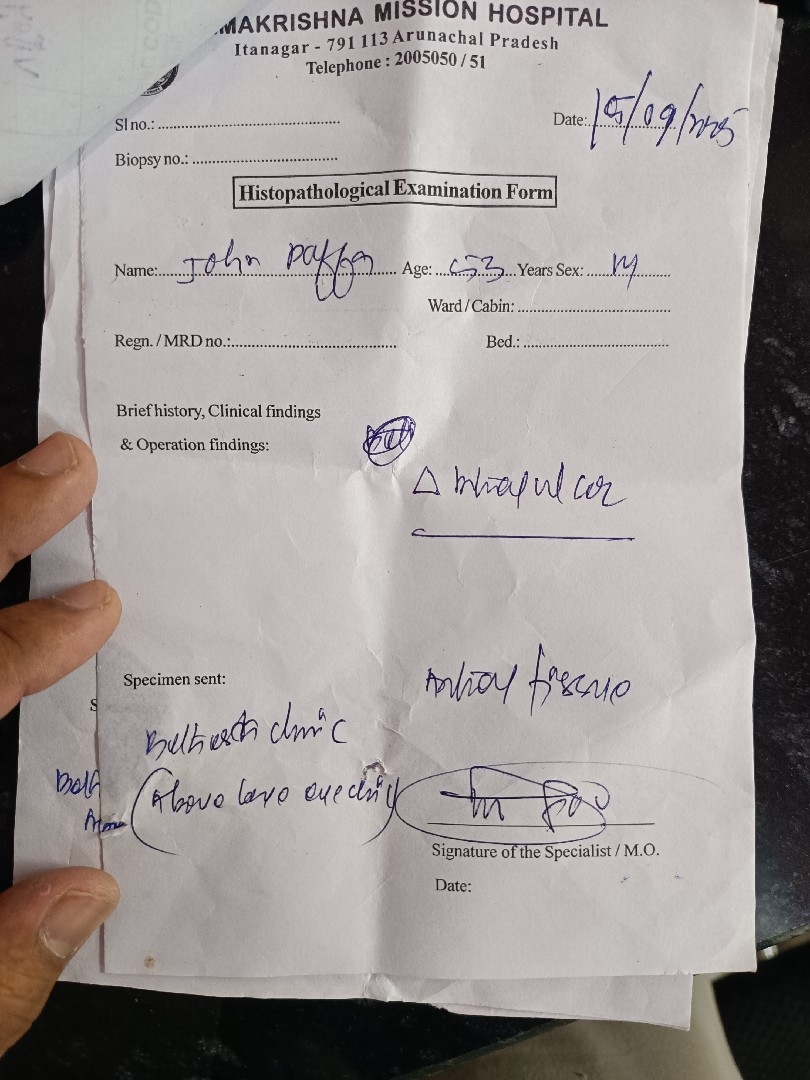 MAKRISHNA MISSION HOSPITAL
Itanagar - 791 113 Arunachal Pradesh
Telephone : 2005050 / 51
Sl no.: Date: 15/09/2025
Biopsy no.:
Histopathological Examination Form
Name: John Age: 53 Years Sex: M
Ward / Cabin:
Regn. / MRD no.: Bed.:
Brief history, Clinical findings
& Operation findings:
Δ
Specimen sent:
clinic
(Above eye clinic)
Signature of the Specialist / M.O.
Date: